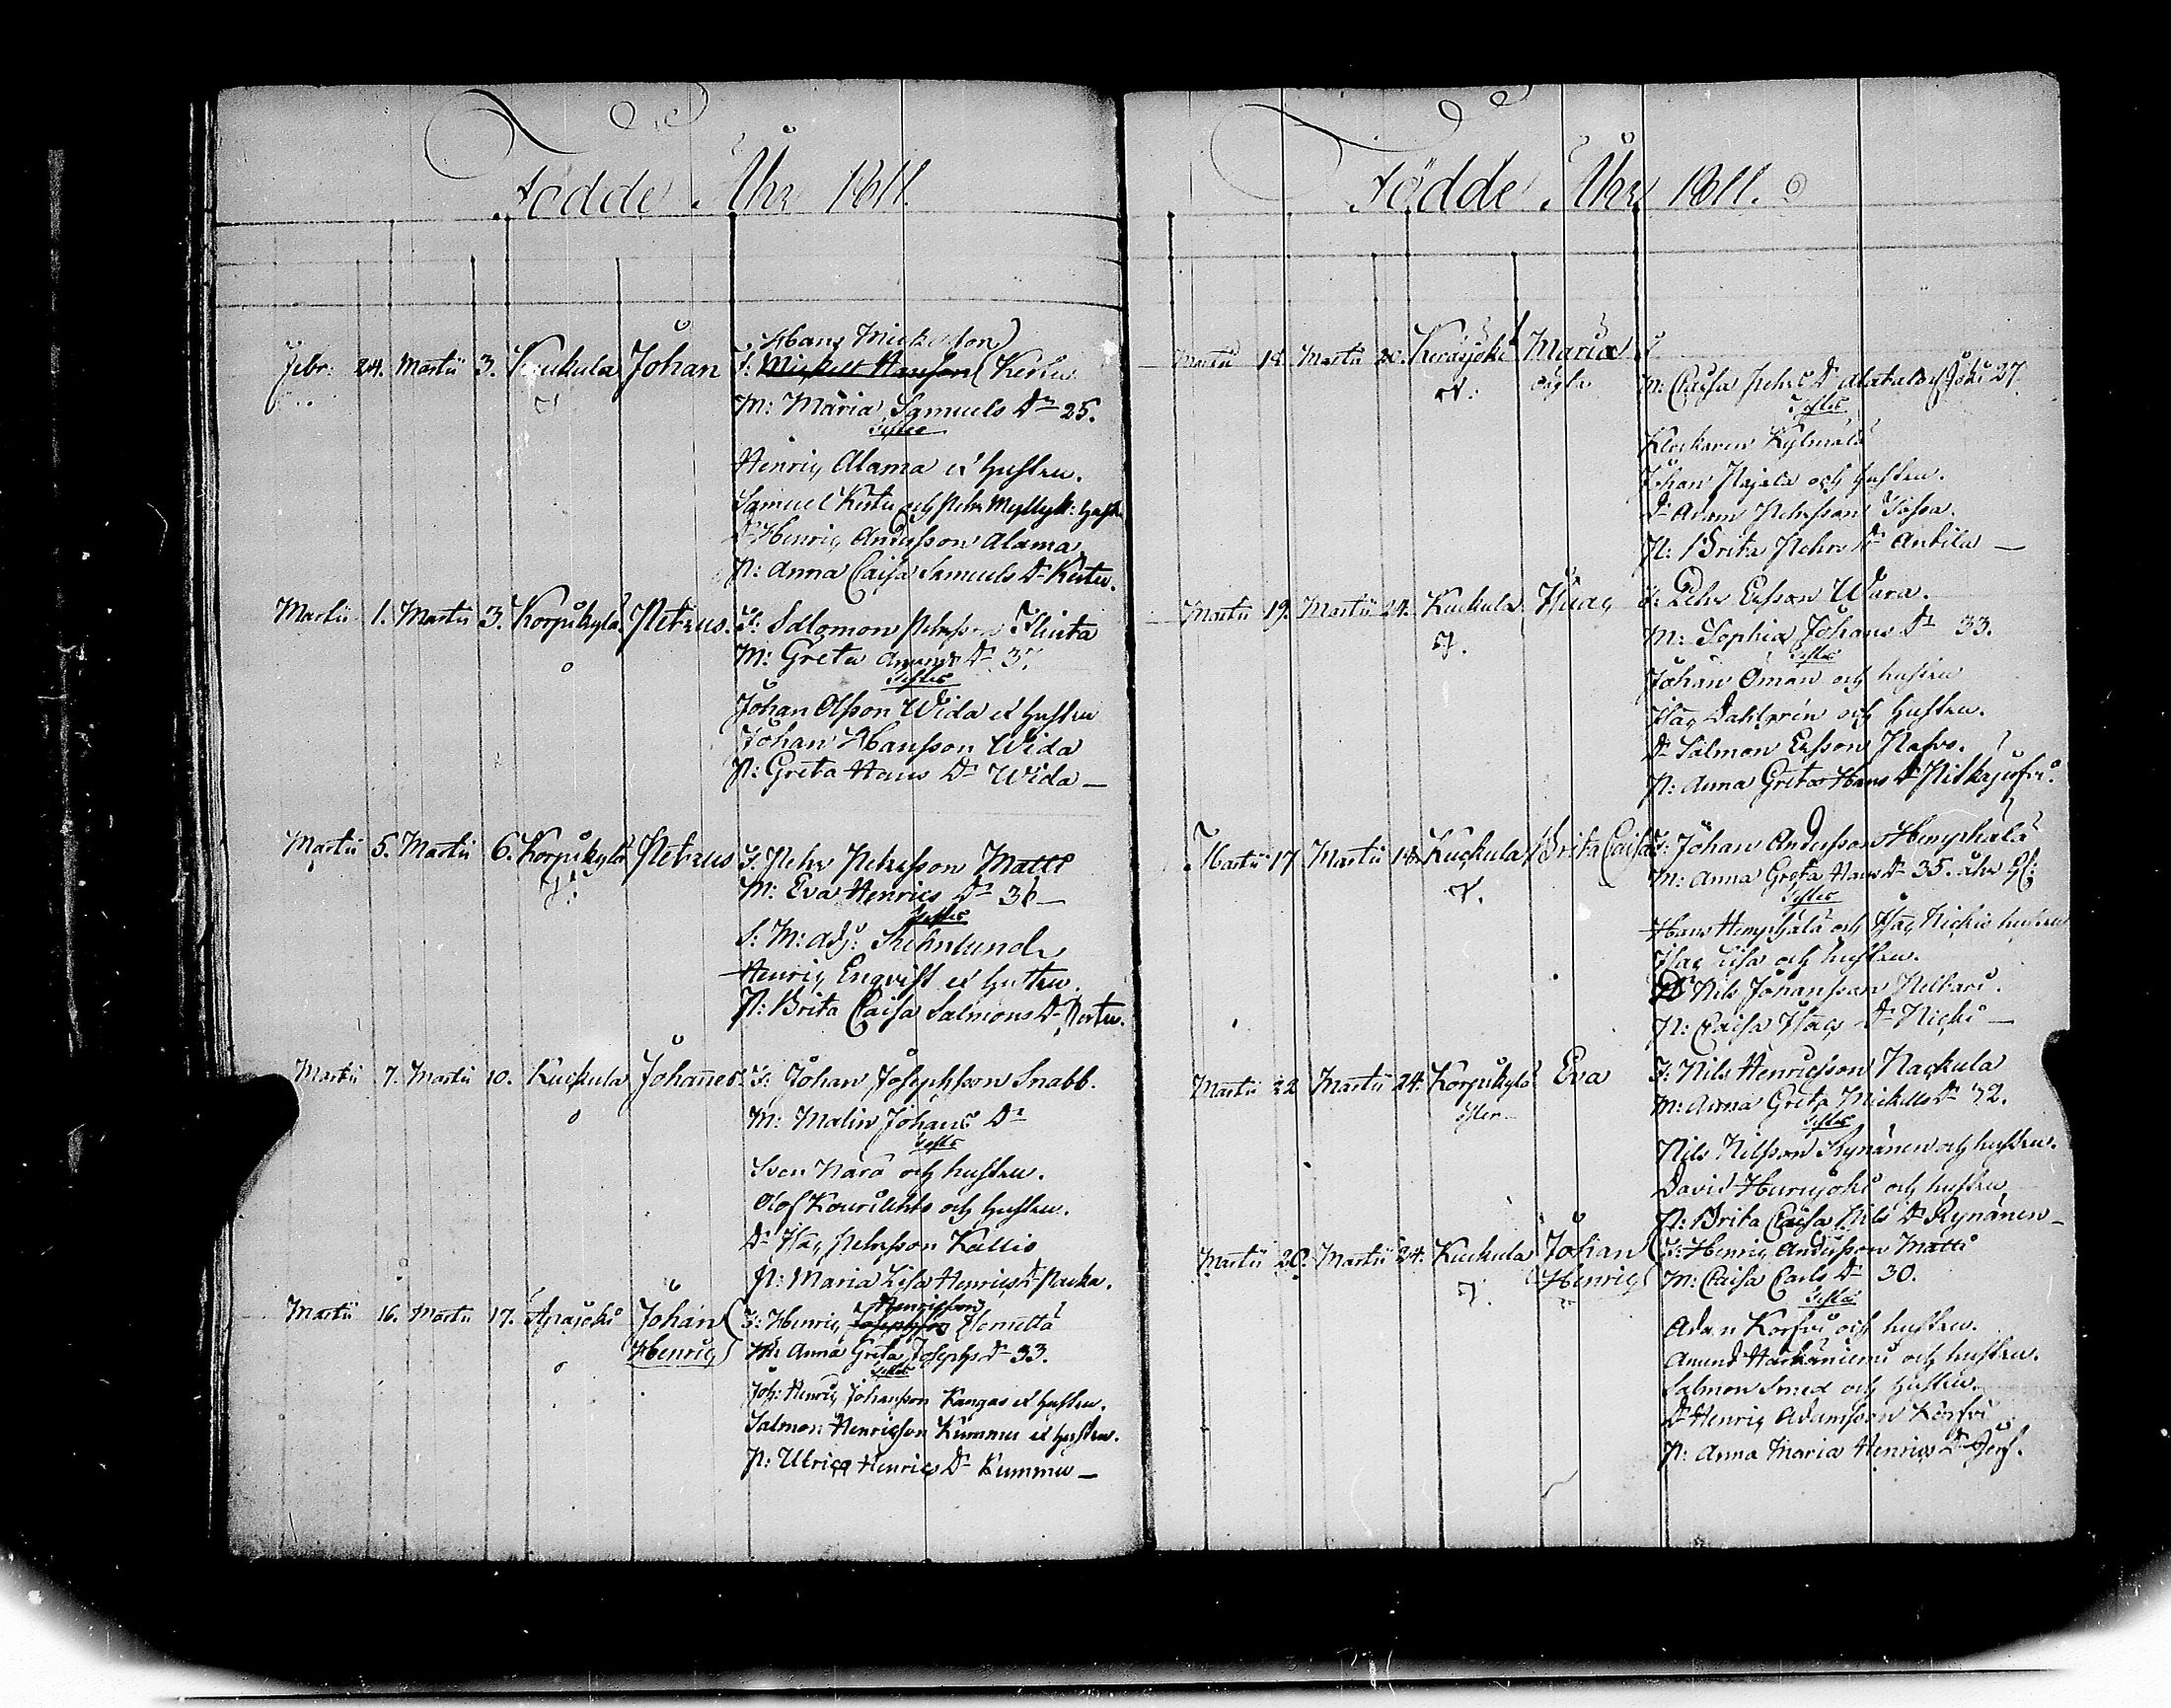 Födde Åhr 1811.
Febr: 24. Martii 3. Kuckula Johan
Hans Mickelson
F: Mickell Hansson Kertu
M: Maria Samuels Dr 25.
Testes
Henric Alama et hustru.
Samuel Kertu och Pehr Myllyk: hust
Dr Henric Andersson Alama
P: Anna Caisa Samuels Dr Kertu.
Martii 1. Martii 3. Korpikylä. Petrus. F: Salomon Pehrsson Flinta
M: Greta Amunds Dr 37
Testes
Johan Olsson Wida et hustru
Johan Hansson Wida
P: Greta Hans Dr Wida —
Martii 5. Martii 6. Korpikylä Petrus F: Pehr Pehrsson Matti
M: Eva Henrics Dr 36 —
Testes
S: M: Adj:
Henric Enqvist et hustru.
P: Brita Caisa Salmons Dr
Martii 7. Martii 10. Kuckula Johannes F: Johan Josephsson Snabb.
M: Malin Johans Dr
Testes
Sven Nara och hustru.
Olof Kourilehto och hustru.
Dr Isac Pehrsson Kallio
P: Maria Lisa Henrics Dr
Martii 16. Martii 17. Apajoki Johan
Henric
Henricsson
F: Henric Josephsson
M: Anna Greta Josephs Dr 33.
Testes
Joh: Henric Johansson Kangas et hustru.
Salmon Henricson Kummu et hustru.
P: Ulrica Henrics Dr Kummu —
Födde Åhr 1811.
Martii 18. Martii 20. Kerasjoki Maria F
oägta M: Caisa Pehrs Dr 27.
Testes
Klockaren Kylmälä
Johan Pajala och hustru.
Dr Adam Pehrsson
P: Brita Pehrs Dr Antila —
Martii 19. Martii 24. Kuckula Isac F: Pehr Ersson Wara.
M: Sophia Johans Dr 33.
Testes
Johan Öman och hustru
Isac Dahlgrén och hustru.
Dr Salmon Ersson
P: Anna Greta Hans Dr Pitkäjerfvi.
Martii 17 Martii 18. Kuckula Brita Caisa F: Johan Andersson Hemphälä
M: Anna Greta Hans Dr 35. åhr
Testes
Hans Hemphälä och Isac Nickis hustru
Isac Lisa och hustru.
Dr Nils Johansson
P: Caisa Isacs Dr Nicki —
Martii 22 Martii 24. Korpikylä Eva F: Nils Henricsson Nackula
M: Anna Greta Mickells Dr 32.
Testes
Nils Nilsson Rynänen och hustru.
David Hurujoki och hustru
P: Brita Caisa Nils Dr Rynänen —
Martii 20. Martii 24. Kuckula Johan
Henric
F: Henric Andersson Matti
M: Caisa Carls Dr 30.
Testes
Adam Korfvi och hustru.
Amund Harkäniemi och hustru.
Salmon Smed och hustru.
Dr Henric Adamsson Korfvi
P: Anna Maria Henrics Dr